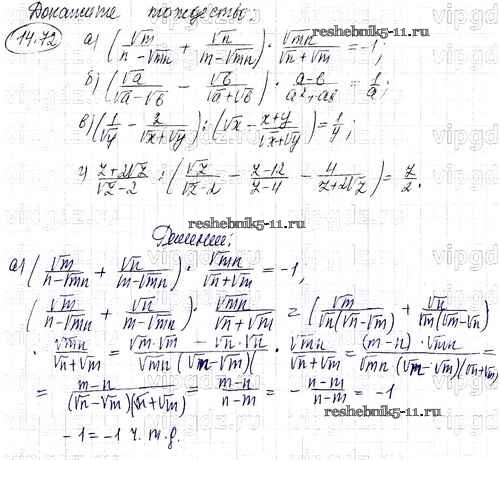 Докажите тождество:
14.72 а) (√m/(n-√mn) + √n/(m-√mn)) · √mn/(√n+√m) = -1;
б) (√a/(√a-√b) - √b/(√a+√b)) · (a-b)/(a²+ab) = 1/a;
в) (1/√y - 2/(√x+√y)) : (√x - (x+y)/(√x+√y)) = 1/y;
г) (z+2√z)/(√z-2) : (√z/(√z-2) - (z-12)/(z-4) - 4/(z+2√z)) = z/2.
reshebnik5-11.ru
а) (√m/(n-√mn) + √n/(m-√mn)) · √mn/(√n+√m) = -1;
(√m/(n-√mn) + √n/(m-√mn)) · √mn/(√n+√m) = (√m/(√n(√n-√m)) + √n/(√m(√m-√n))
· √mn/(√n+√m) = (√m·√m - √n·√n)/(√mn (√m-√n)( · √mn/(√n+√m) = (m-n)·√mn/(√mn·(√m-√n)(√n+√m)) =
= (m-n)/((√n-√m)(√n+√m)) = (m-n)/(n-m) = -(n-m)/(n-m) = -1
-1 = -1 ч.т.д.
reshebnik5-11.ru